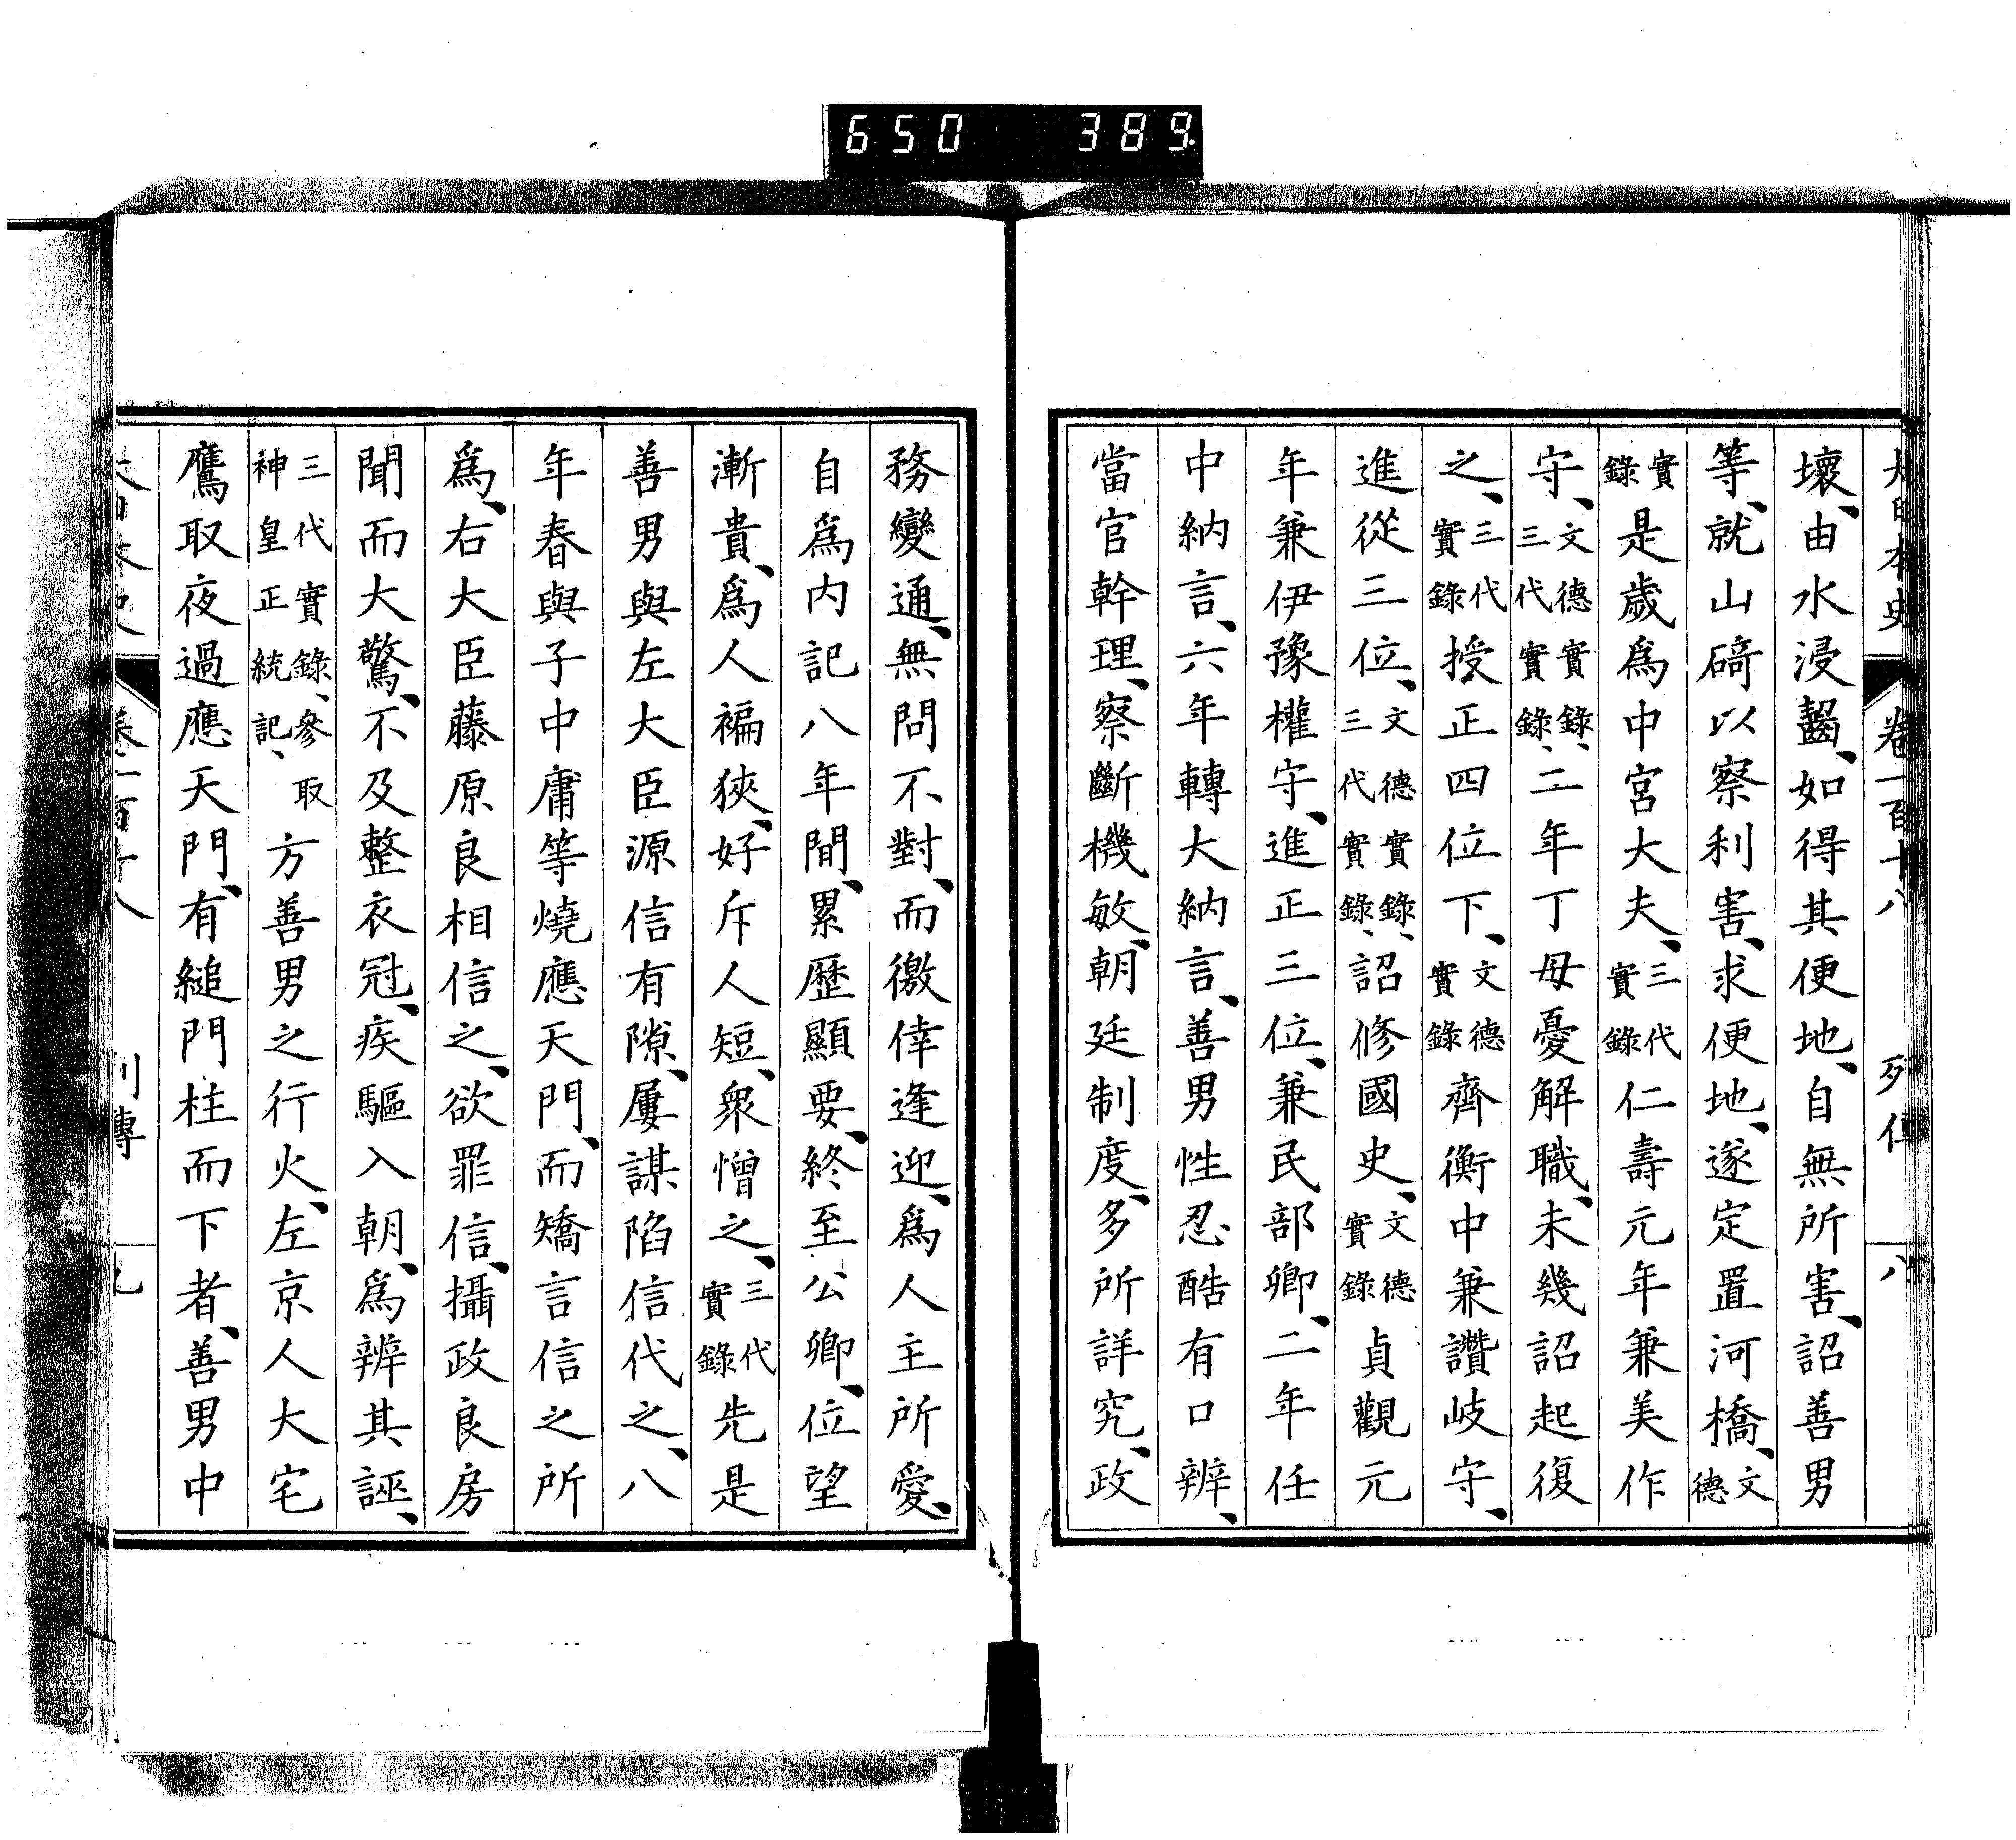 650 389
大日本史 卷一百十八 列傳 八
壞、由水浸齧、如得其便地、自無所害、詔善男
等、就山碕以察利害、求便地、遂定置河橋、文德
實錄是歲爲中宮大夫、三代實錄仁壽元年兼美作
守、文德實錄、三代實錄、二年丁母憂解職、未幾詔起復
之、三代實錄授正四位下、文德實錄齊衡中兼讚岐守、
進從三位、文德實錄、三代實錄、詔修國史、文德實錄貞觀元
年兼伊豫權守、進正三位、兼民部卿、二年任
中納言、六年轉大納言、善男性忍酷有口辨、
當官幹理、察斷機敏、朝廷制度、多所詳究、政
務變通、無問不對、而徼倖逢迎、爲人主所愛、
自爲内記八年間、累歷顯要、終至公卿、位望
漸貴、爲人褊狹、好斥人短、衆憎之、三代實錄先是
善男與左大臣源信有隙、屢謀陷信代之、八
年春與子中庸等燒應天門、而矯言信之所
爲、右大臣藤原良相信之、欲罪信、攝政良房
聞而大驚、不及整衣冠、疾驅入朝、爲辨其誣、
三代實錄、參取神皇正統記、方善男之行火、左京人大宅
鷹取夜過應天門、有縋門柱而下者、善男中
大日本史 卷一百十八 列傳 九